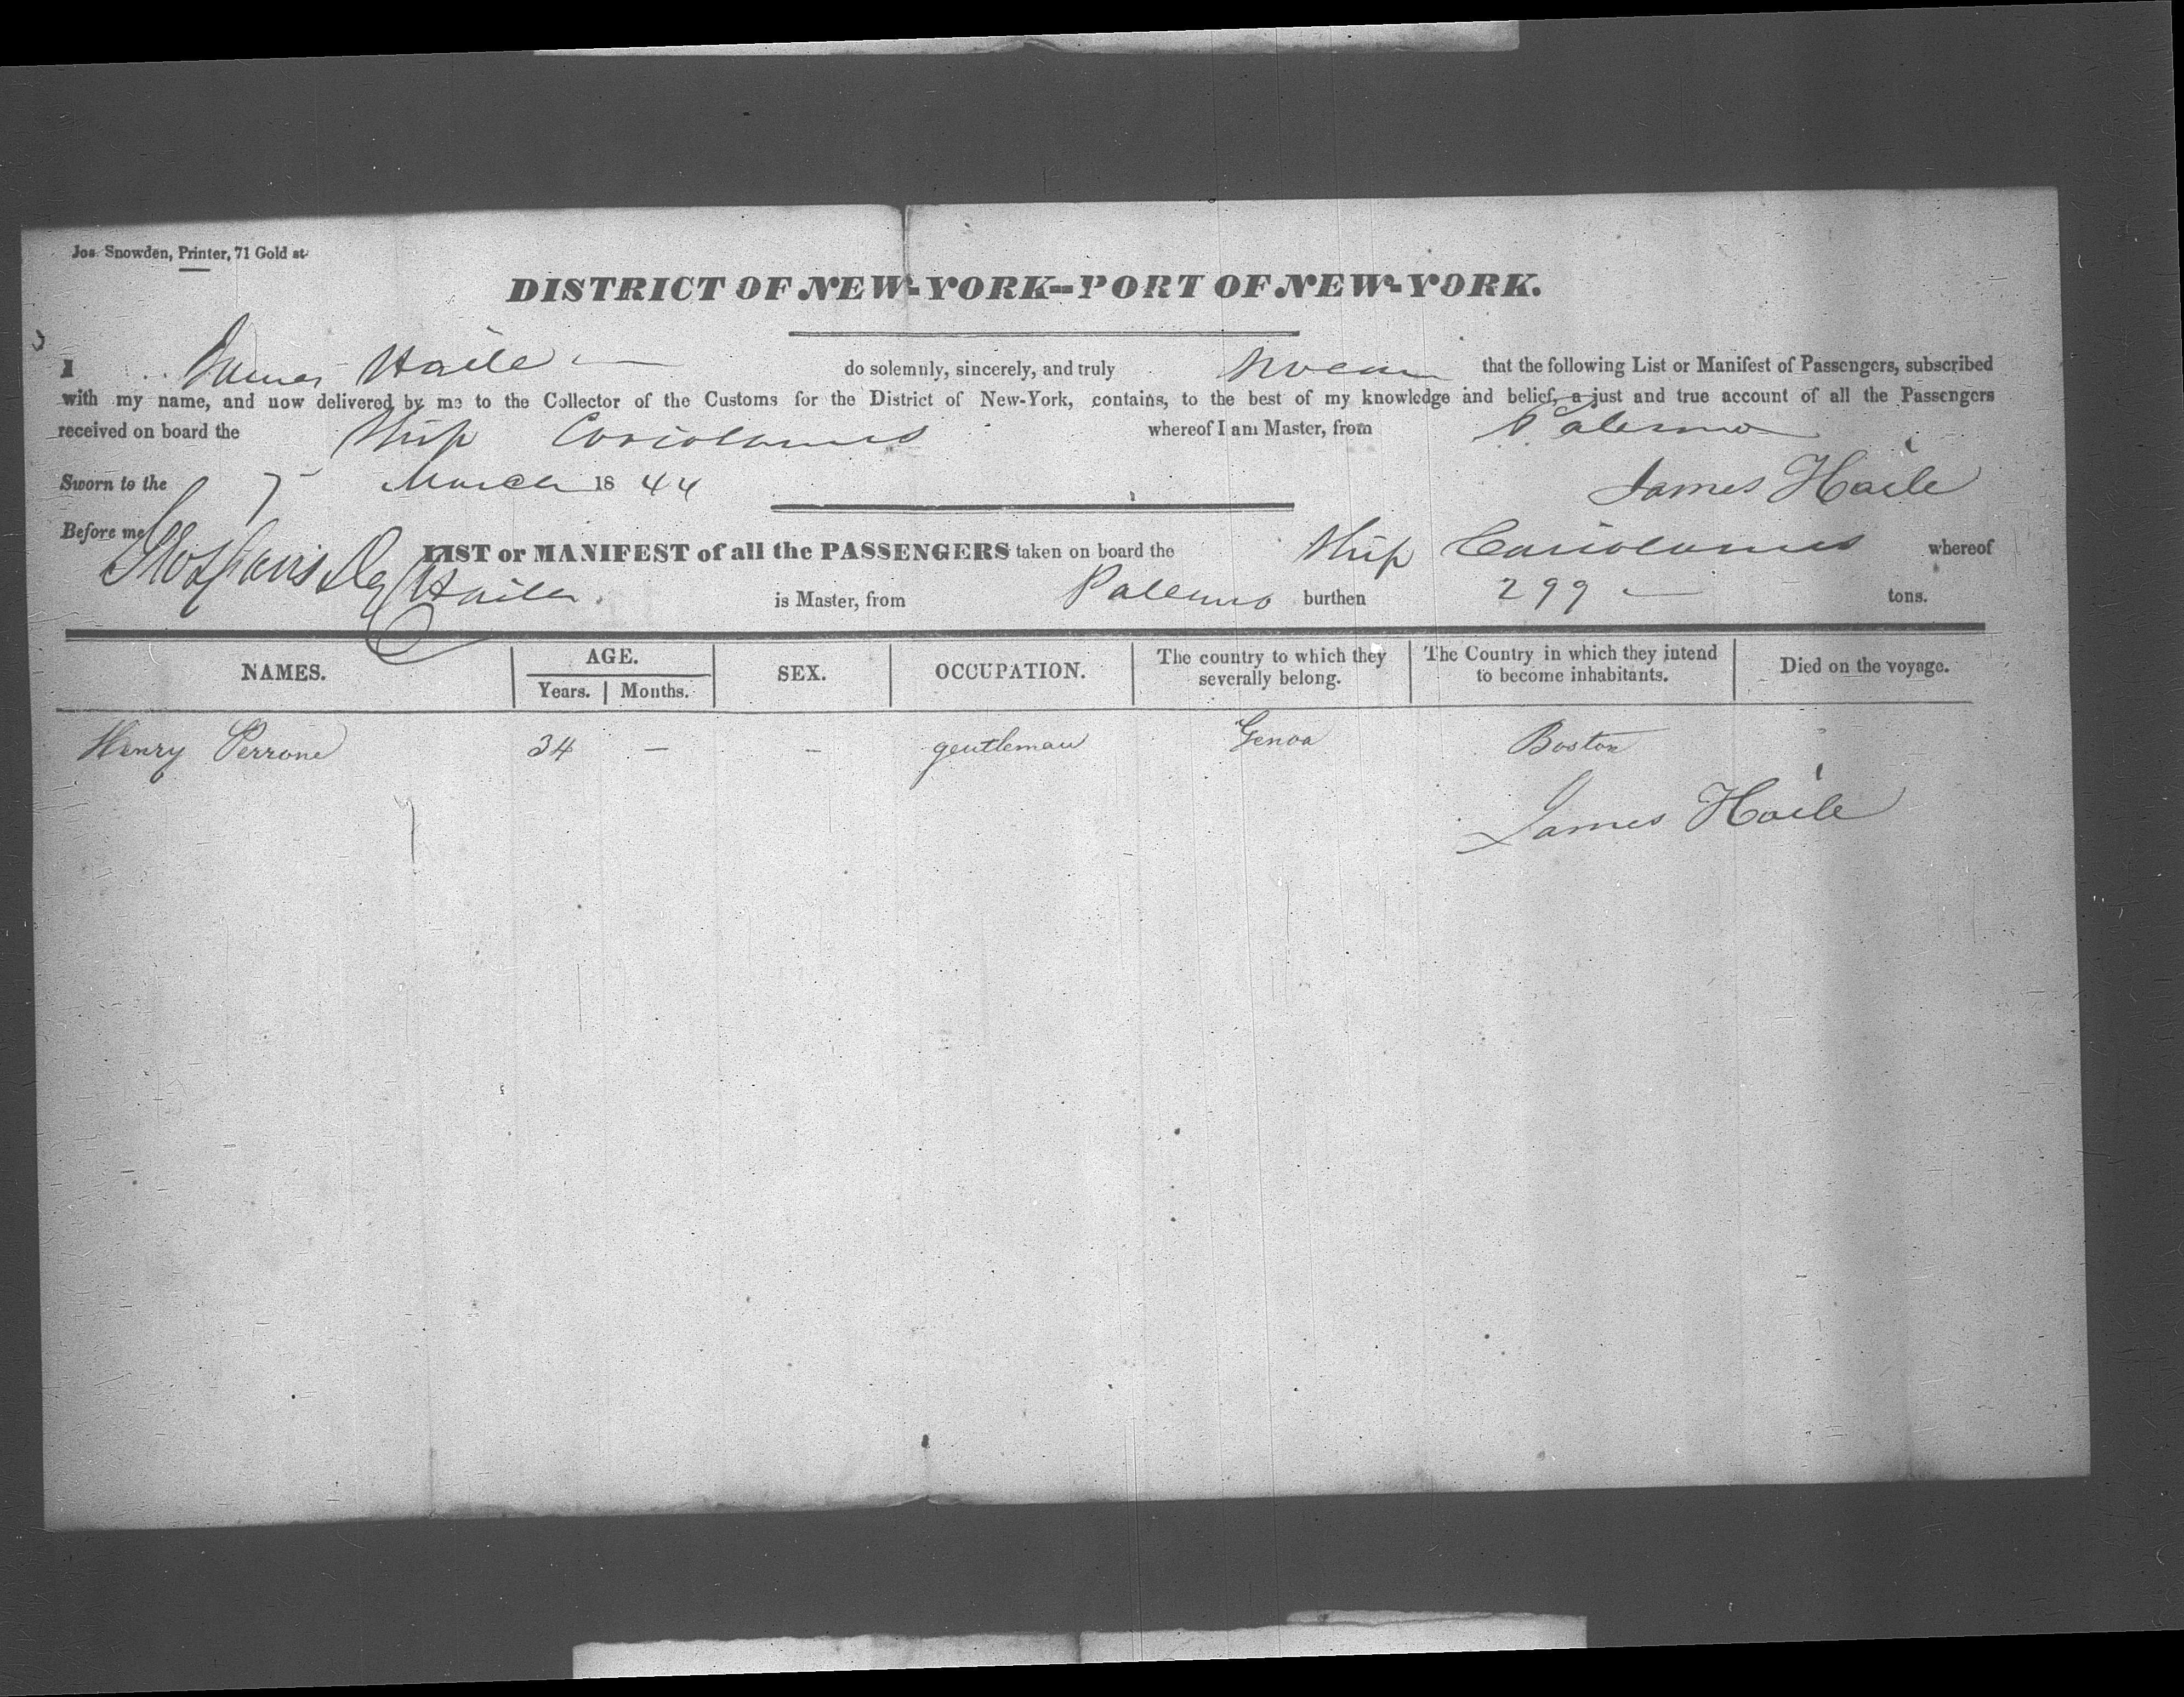 Jos. Snowden, Printer, 71 Gold st.
DISTRICT OF NEW-YORK--PORT OF NEW-YORK.
I James Haile do solemnly, sincerely, and truly swear that the following List or Manifest of Passengers, subscribed
with my name, and now delivered by me to the Collector of the Customs for the District of New-York, contains, to the best of my knowledge and belief, a just and true account of all the Passengers
received on board the Ship Coriolanus whereof I am Master, from Palermo
Sworn to the 7 March 1844 James Haile
Before me
LIST or MANIFEST of all the PASSENGERS taken on board the Ship Coriolanus whereof
Haile is Master, from Palermo burthen 299 tons.
NAMES. AGE. Years. Months. SEX. OCCUPATION. The country to which they severally belong. The Country in which they intend to become inhabitants. Died on the voyage.
Henry Perrone 34 — — gentleman Genoa Boston
James Haile